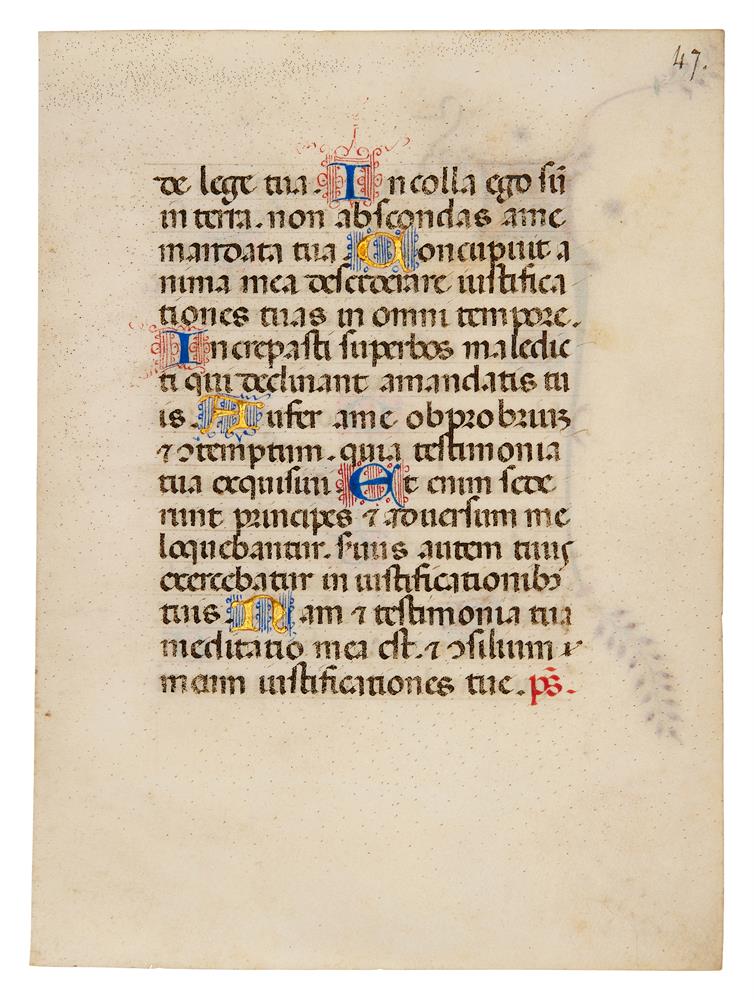 47.
de lege tua. Incolla ego sū
in terra. non abscondas ame
mandata tua. Concupiuit a
nima mea desederare iustifica
tiones tuas in omni tempore.
Increpasti superbos maledic
ti qui declinant amandatis tu
is. Aufer ame obprobriuʒ
⁊ ↄtemptum. quia testimonia
tua exquisiui. Et enim sede
runt principes ⁊ aduersum me
loquebantur. seruus autem tuus
exercebatur in iustificationibꝰ
tuis. Nam ⁊ testimonia tua
meditatio mea est. ⁊ ↄsilium
meum iustificationes tue. pš.